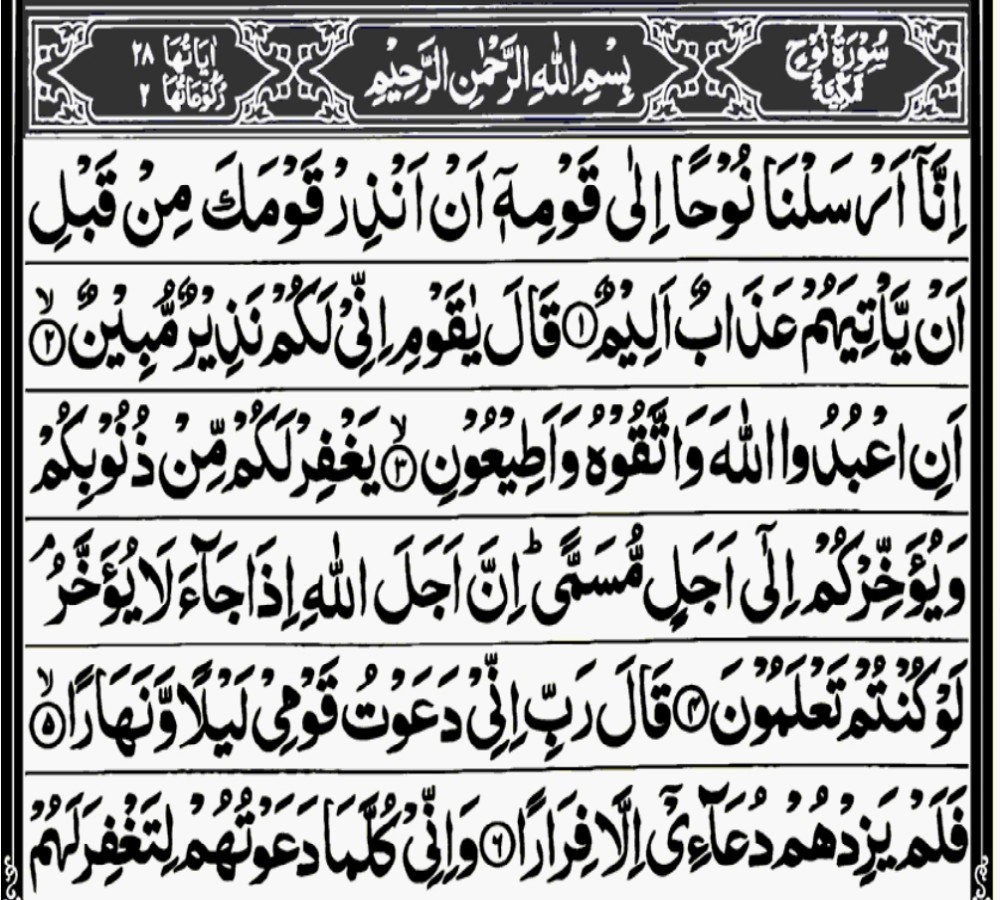 سُوْرَةُ نُوْحٍ
مَكِّيَّةٌ
بِسْمِ اللهِ الرَّحْمٰنِ الرَّحِيْمِ
اٰيَاتُهَا ٢٨
رُكُوْعَاتُهَا ٢
اِنَّاۤ اَرْسَلْنَا نُوْحًا اِلٰى قَوْمِهٖۤ اَنْ اَنْذِرْ قَوْمَكَ مِنْ قَبْلِ
اَنْ يَّاْتِيَهُمْ عَذَابٌ اَلِيْمٌ ١ قَالَ يٰقَوْمِ اِنِّيْ لَكُمْ نَذِيْرٌ مُّبِيْنٌ ٢ۙ
اَنِ اعْبُدُوا اللهَ وَاتَّقُوْهُ وَاَطِيْعُوْنِ ٣ۙ يَغْفِرْ لَكُمْ مِّنْ ذُنُوْبِكُمْ
وَيُؤَخِّرْكُمْ اِلٰۤى اَجَلٍ مُّسَمًّىؕ اِنَّ اَجَلَ اللهِ اِذَا جَآءَ لَا يُؤَخَّرُۘ
لَوْ كُنْتُمْ تَعْلَمُوْنَ ٤ قَالَ رَبِّ اِنِّيْ دَعَوْتُ قَوْمِيْ لَيْلًا وَّنَهَارًا ٥ۙ
فَلَمْ يَزِدْهُمْ دُعَآءِيْۤ اِلَّا فِرَارًا ٦ وَاِنِّيْ كُلَّمَا دَعَوْتُهُمْ لِتَغْفِرَ لَهُمْ